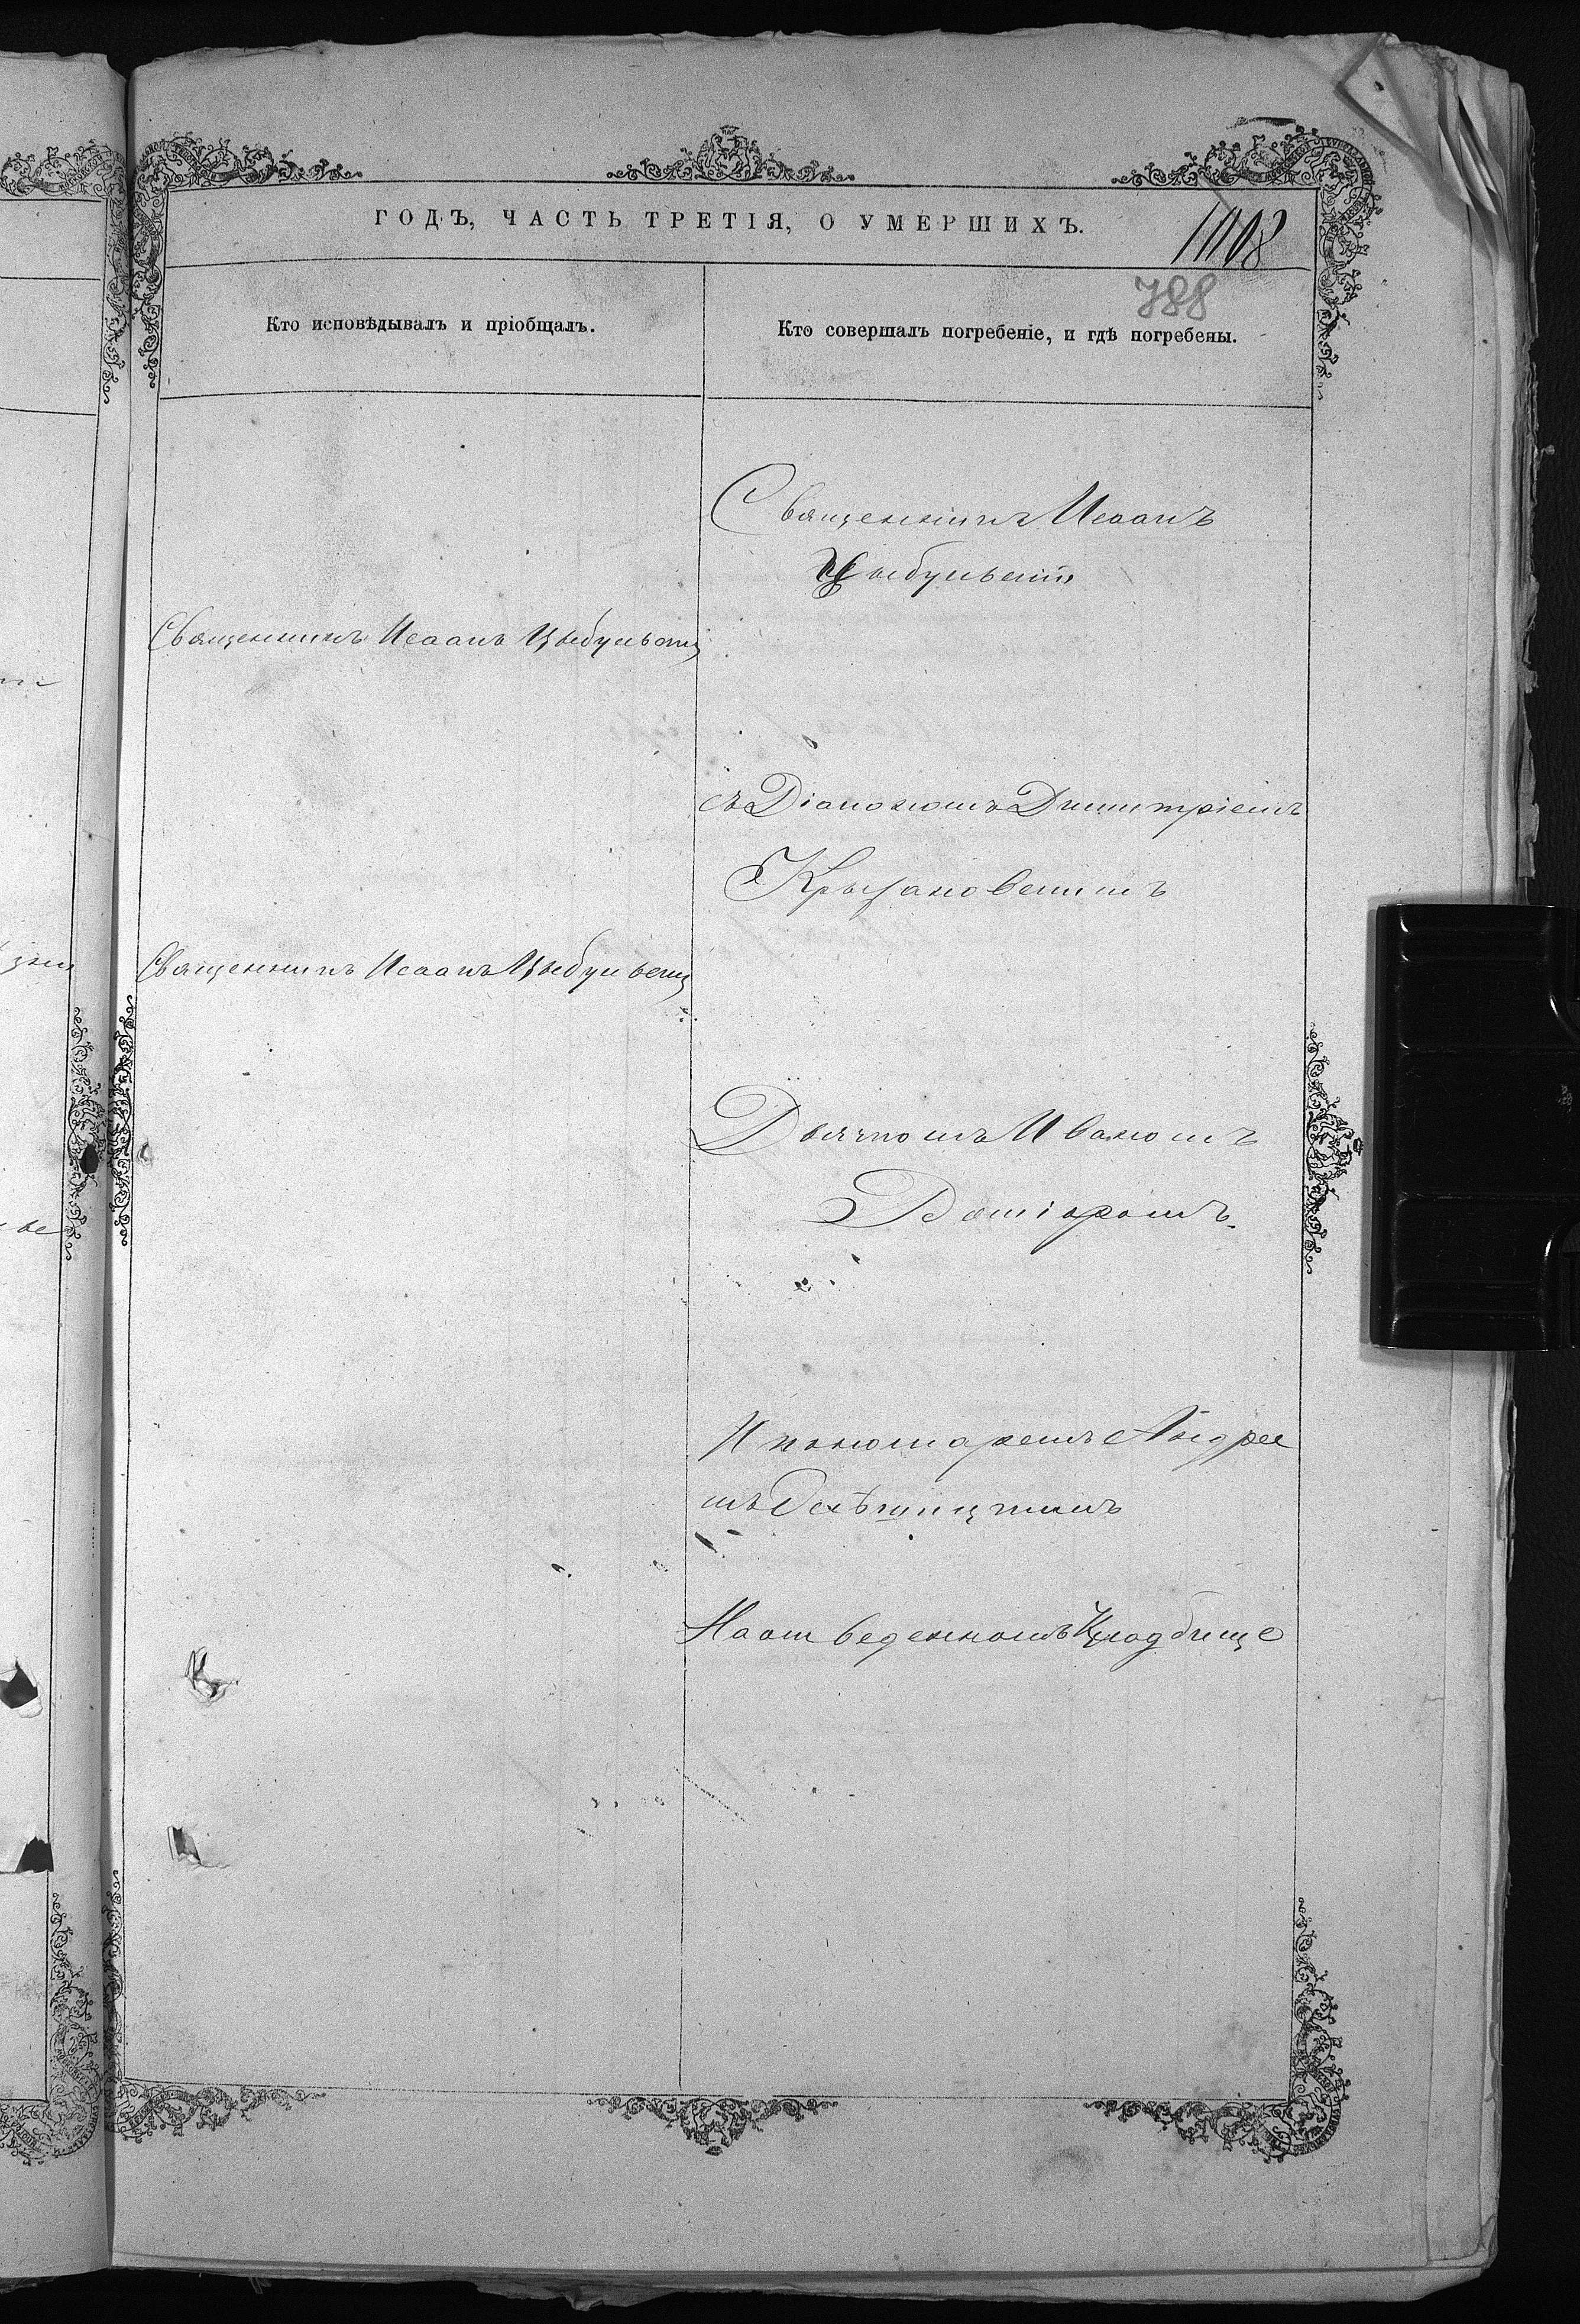 ГОДЪ, ЧАСТЬ ТРЕТІЯ, О УМЕРШИХЪ.
1108
788
Кто исповѣдывалъ и пріобщалъ.
Кто совершалъ погребеніе, и гдѣ погребены.
Священникъ Исаакъ
Цыбульскій
Священникъ Исаакъ Цыбульскій
съ Діакономъ Димитріемъ
Крыжановскимъ
Священникъ Исаакъ Цыбульскій
Дьячкомъ Иваномъ
И пономаремъ Андрее
мъ
На отведенномъ Кладбище